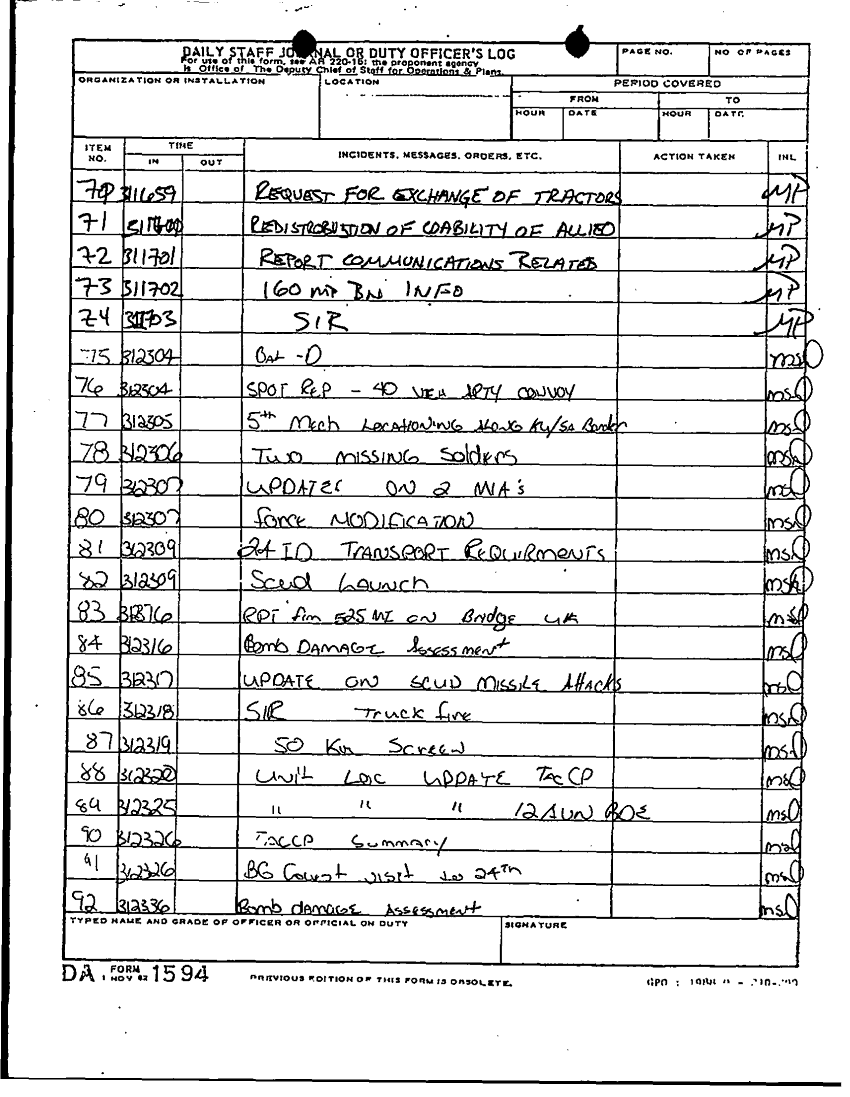 DAILY STAFF JOURNAL OR DUTY OFFICER'S LOG
For use of this form, see AR 220-15; the proponent agency
is Office of The Deputy Chief of Staff for Operations & Plans.
PAGE NO. NO OF PAGES
ORGANIZATION OR INSTALLATION LOCATION PERIOD COVERED
FROM TO
HOUR DATE HOUR DATE
ITEM NO. TIME INCIDENTS, MESSAGES, ORDERS, ETC. ACTION TAKEN INL
IN OUT
70 311659 REQUEST FOR EXCHANGE OF TRACTORS MP
71 REDISTROBUTION OF COABILITY OF ALLIED MP
72 311701 REPORT COMMUNICATIONS RELATED MP
73 311702 160 MP BN INFO MP
74 311703 SIR MP
75 312304 BAL -D msO
76 312304 SPOT REP - 40 VEH ARTY CONVOY msO
77 312305 5th Mech LOCATIONING ALONG KU/SA Border msO
78 312306 TWO MISSING SOLDIERS msO
79 312307 UPDATES ON 2 MIA's msO
80 312307 force MODIFICATION msO
81 312309 24 ID TRANSPORT REQUIRMENTS msO
82 312309 Scud LAUNCH msO
83 RPT fm 525 MI ON Bridge msO
84 312316 Bomb DAMAGE Assessment msO
85 312317 UPDATE ON SCUD MISSILE Attacks msO
86 312318 SIR Truck fire msO
87 312319 50 Km Screen msO
88 312320 UNIT LOC UPDATE TACCP msO
89 312325 " " " 12 AVN BDE msO
90 312326 TACCP Summary msO
91 312326 BG visit to 24th msO
92 312336 Bomb DAMAGE Assessment msO
TYPED NAME AND GRADE OF OFFICER OR OFFICIAL ON DUTY SIGNATURE
DA FORM 1 NOV 62 1594 PREVIOUS EDITION OF THIS FORM IS OBSOLETE.